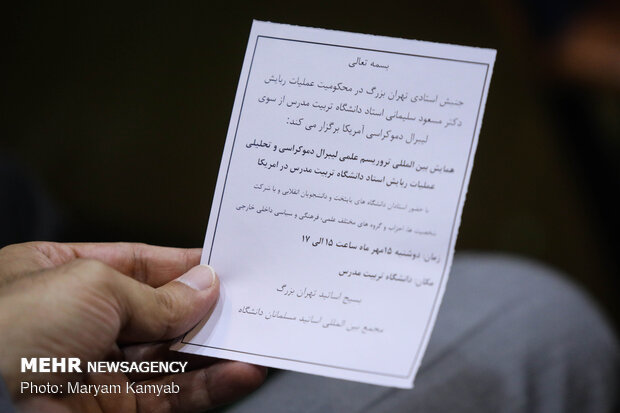 بسمه تعالی
جنبش استادی تهران بزرگ در محکومیت عملیات ربایش
دکتر مسعود سلیمانی استاد دانشگاه تربیت مدرس از سوی
لیبرال دموکراسی آمریکا برگزار می کند:
همایش بین المللی تروریسم علمی لیبرال دموکراسی و تحلیلی
عملیات ربایش استاد دانشگاه تربیت مدرس در امریکا
با حضور استادان دانشگاه های پایتخت و دانشجویان انقلابی و با شرکت
شخصیت ها، احزاب و گروه های مختلف علمی، فرهنگی و سیاسی داخلی خارجی
زمان: دوشنبه ۱۵مهر ماه ساعت ۱۵ الی ۱۷
مکان: دانشگاه تربیت مدرس
بسیج اساتید تهران بزرگ
مجمع بین المللی اساتید مسلمانان دانشگاه
MEHR NEWSAGENCY
Photo: Maryam Kamyab